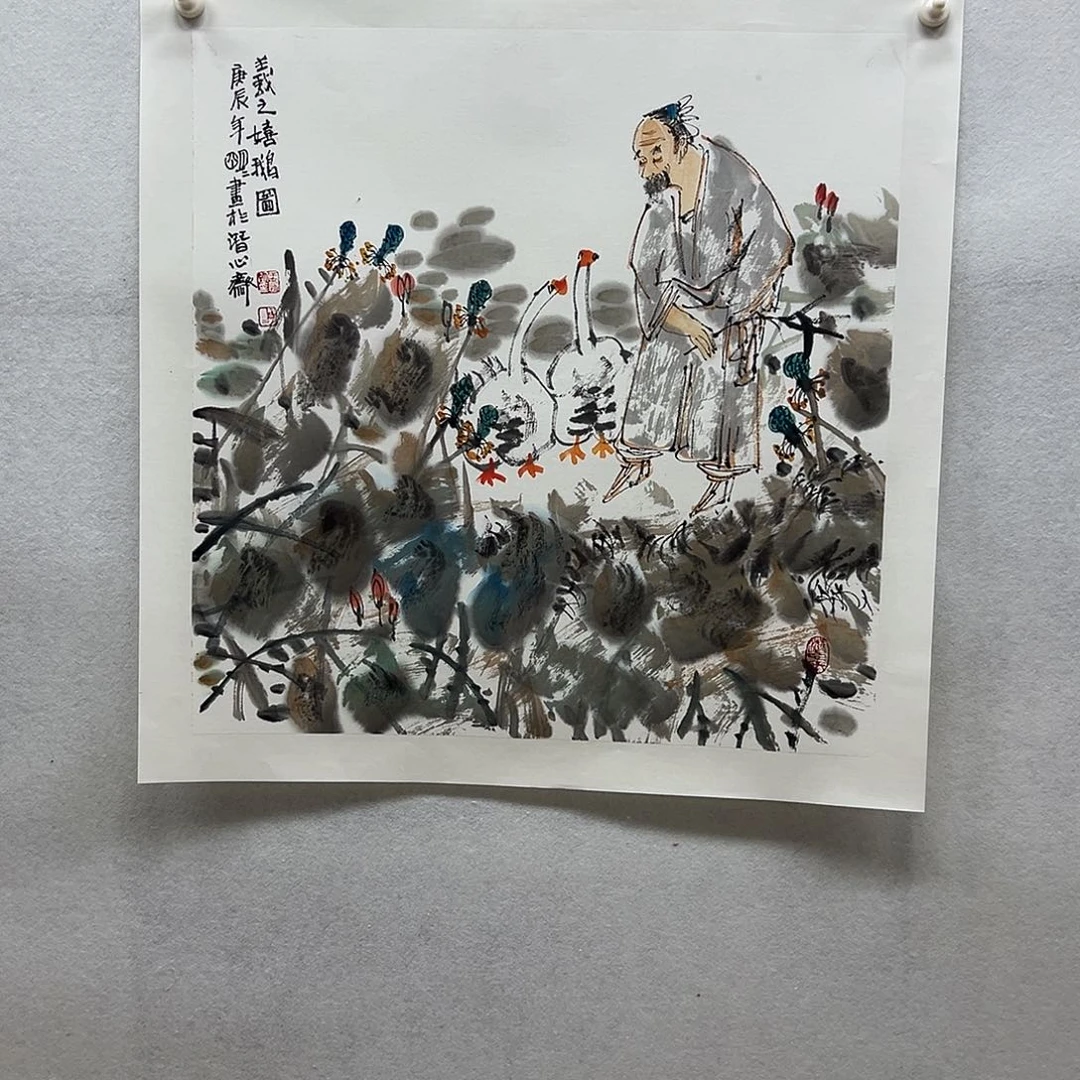 羲之嬉鹅圖
庚辰年明畫於潛心齋